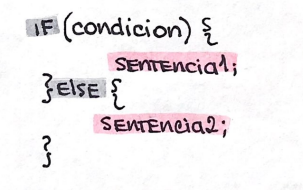 IF (condicion) {
SENTENcia1;
} ElSE {
SENTENcia2;
}